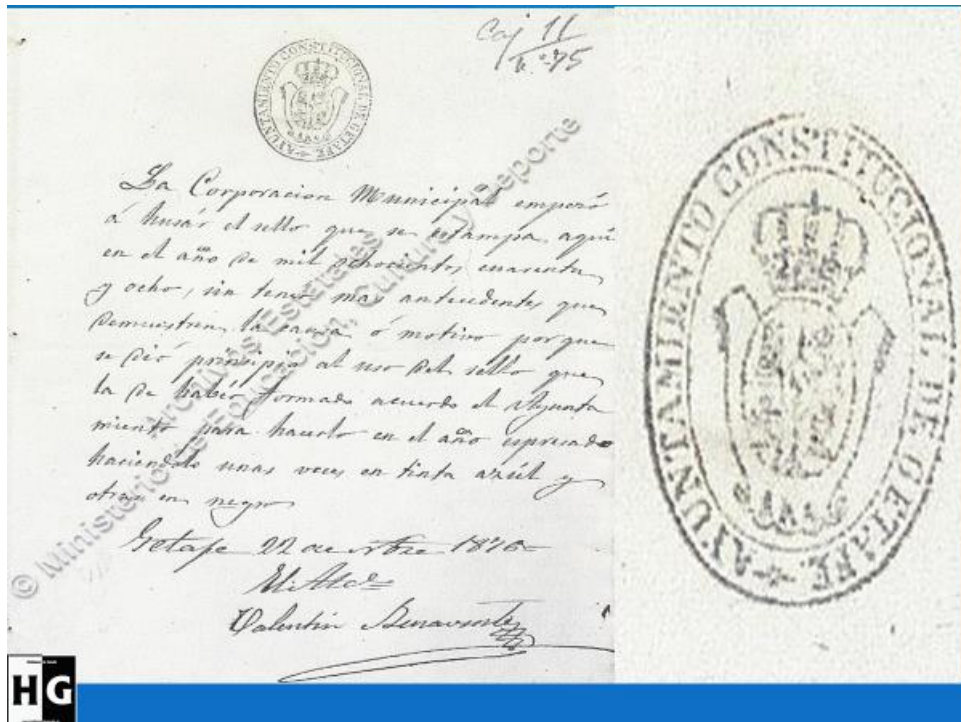 Caj 11
n.º 75
AYUNTAMIENTO CONSTITUCIONAL DE GETAFE
La Corporacion Municipal empezó
á husar el sello que se estampa aquí
en el año de mil ochocientos cuarenta
y ocho, sin tener mas antecedentes que
demuestren la causa ó motivo porque
se dió principio al uso del sello que
la de haber formado acuerdo el Ayunta
miento para hacerlo en el año espresado
haciendolo unas veces en tinta azúl y
otras en negro
Getafe 22 de 1876
El Alc.de
Valentin Benavente
© Ministerio de Educación, Cultura y Deporte
Archivos Estatales
AYUNTAMIENTO CONSTITUCIONAL DE GETAFE
HG